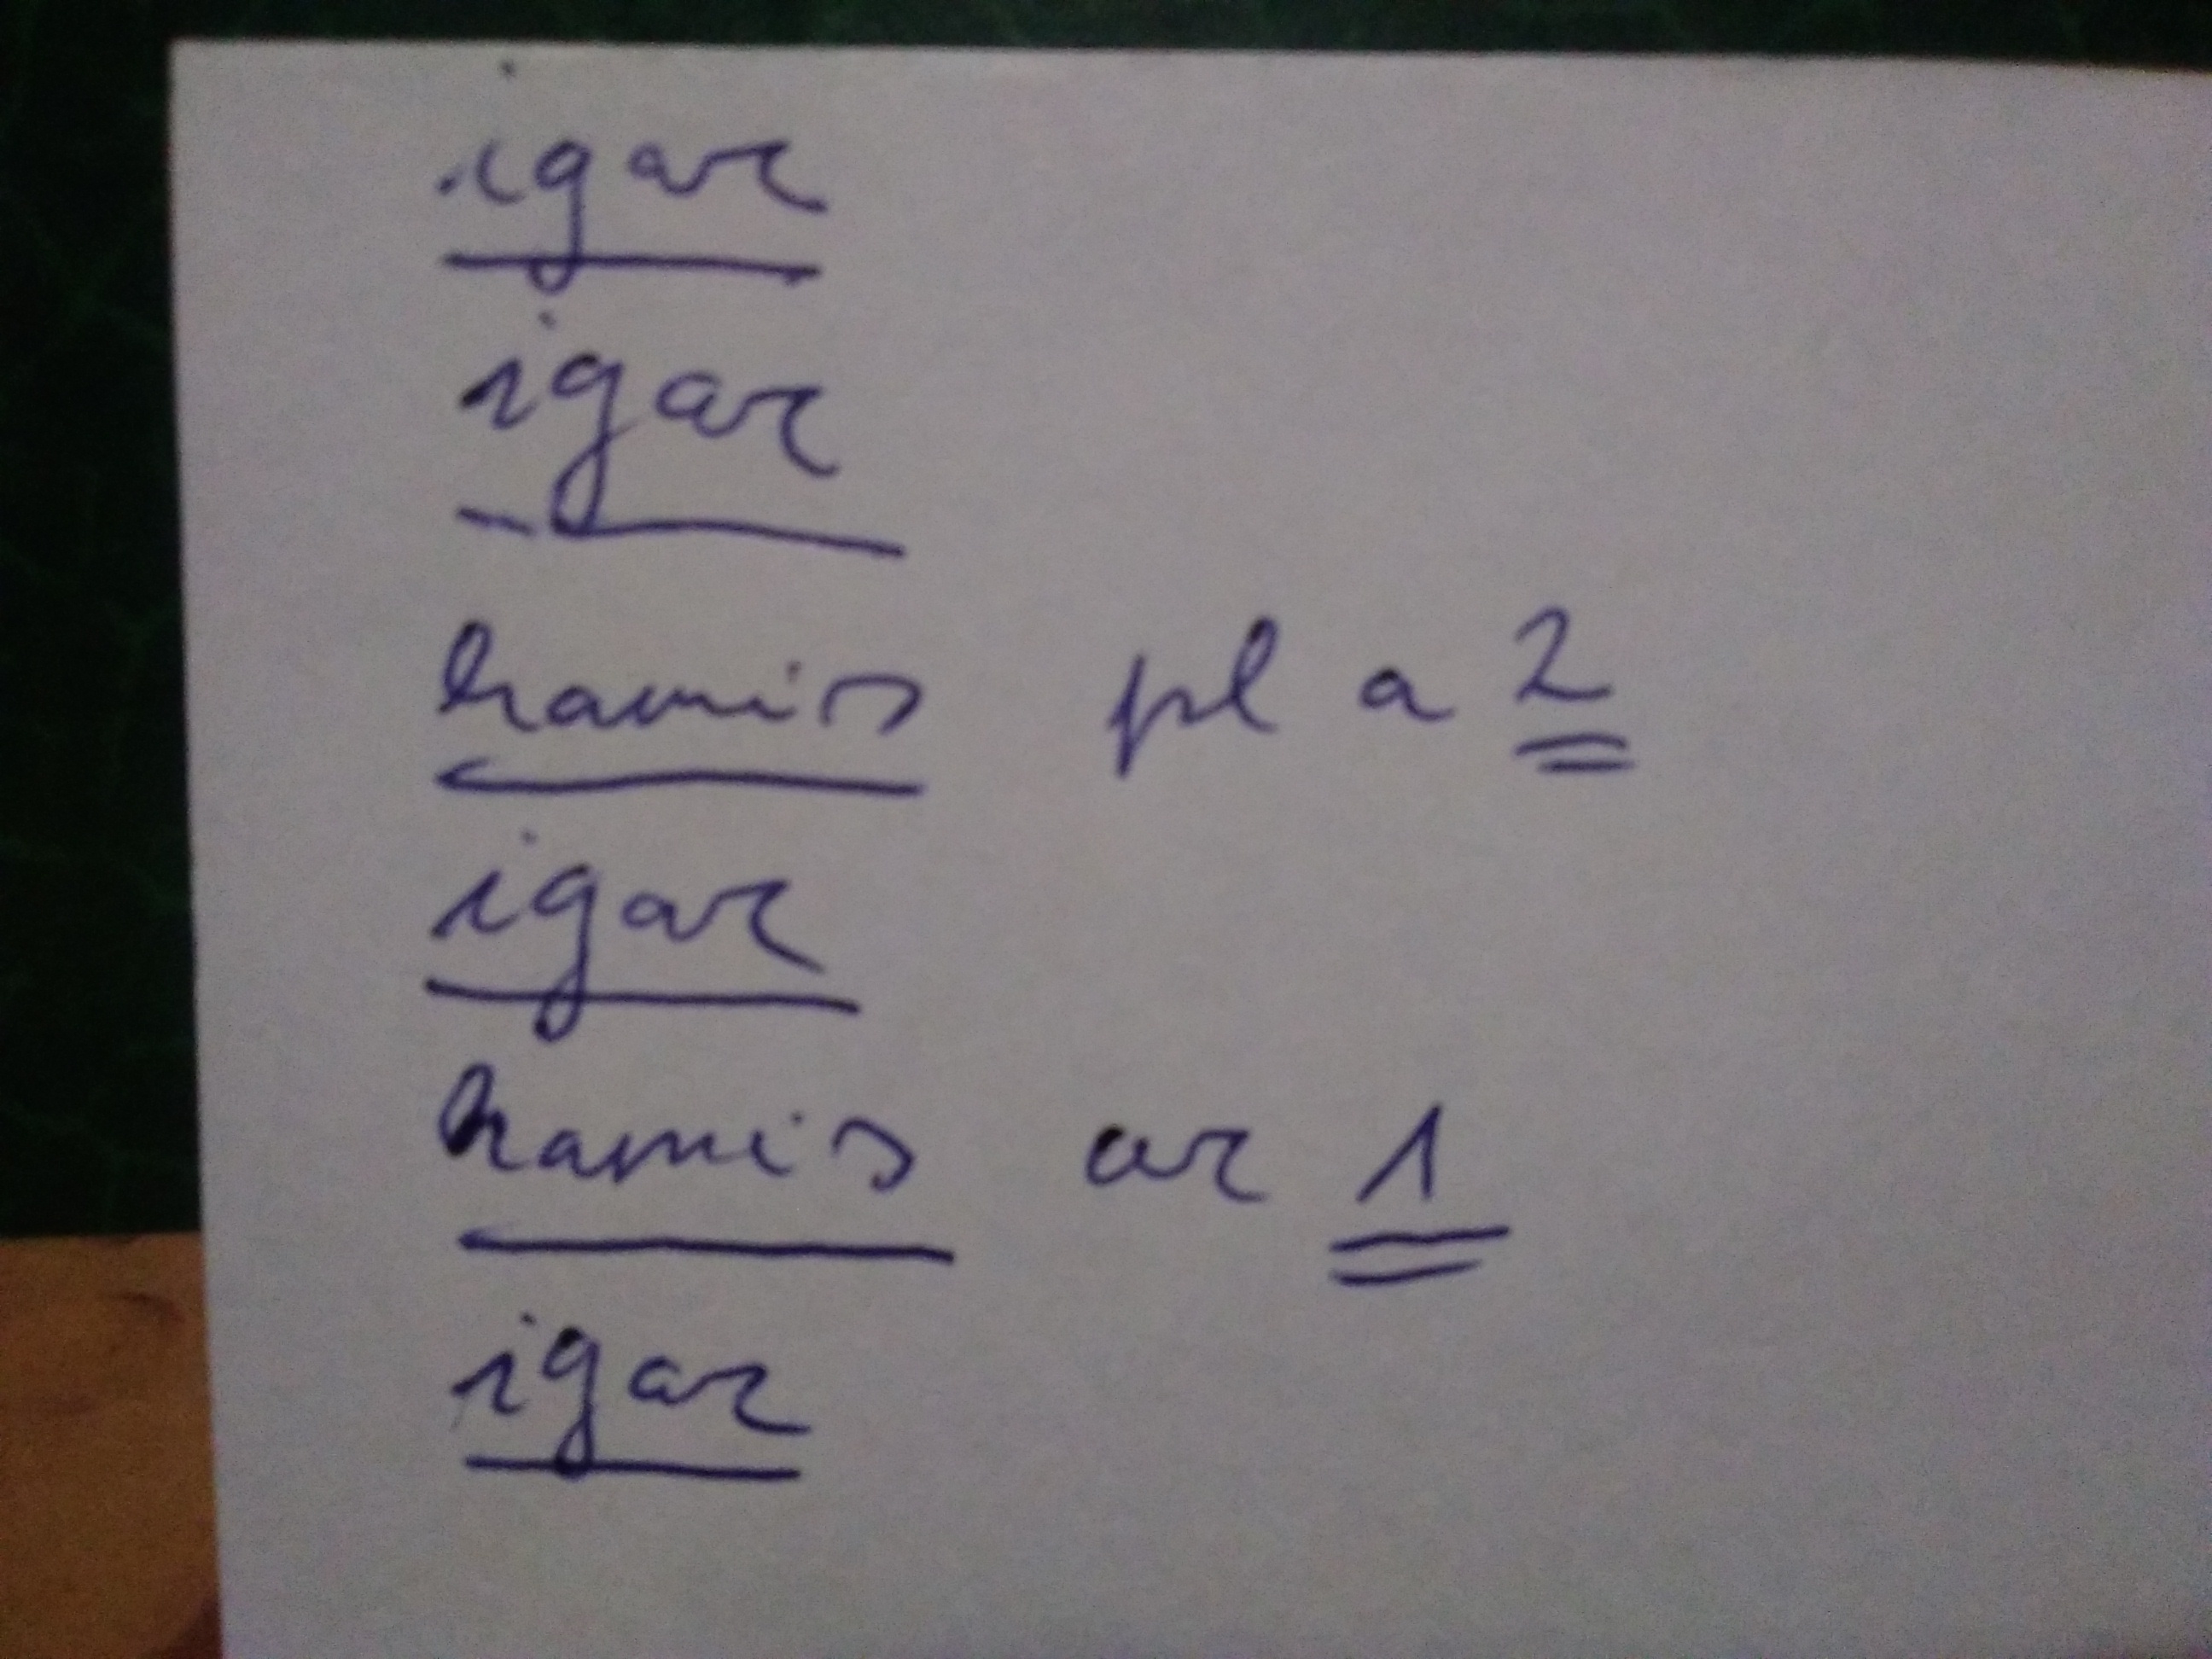 igaz
igaz
hamis pl a 2
igaz
hamis az 1
igaz